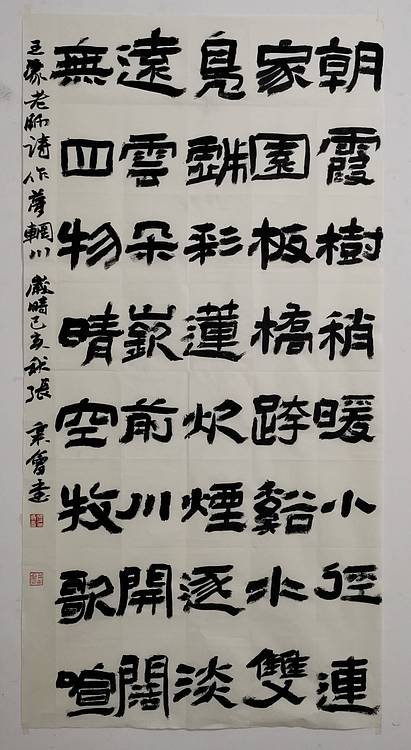 朝霞樹稍暖小徑連
家園板橋跨谿水雙
鳧戲彩蓮炊煙逐淡
遠雲朵嵌前川開闊
無四物晴空牧歌喧
王老師詩作夢輞川 歲時己亥秋張秉會書